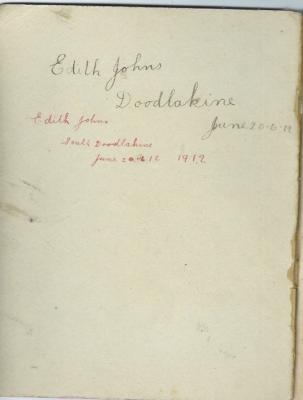 Edith Johns
Doodlakine
June 20-6-12
Edith Johns
South Doodlakine
June 20-6-12 1912